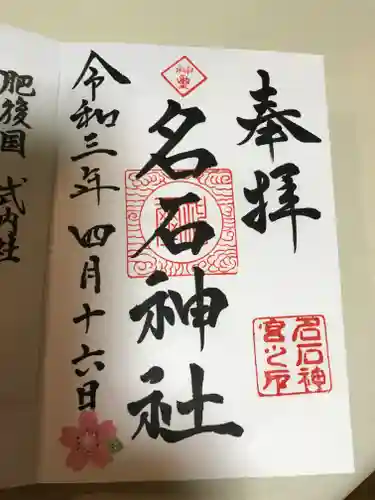 奉拝
名石神社
令和三年四月十六日
名石神
宮之印
肥後国 式内社